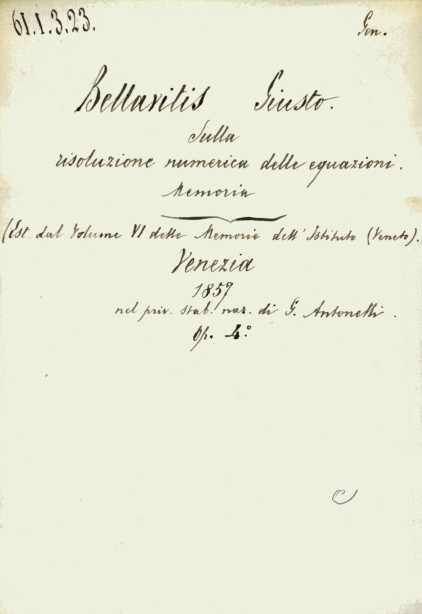 61.1.3.23.
Gen.
Bellavitis Giusto.
Sulla
risoluzione numerica delle equazioni.
Memoria
(Est. dal Volume VI delle Memorie dell'Istituto (Veneto).
Venezia
1857
nel priv. stab. naz. di G. Antonelli.
Op. 4°